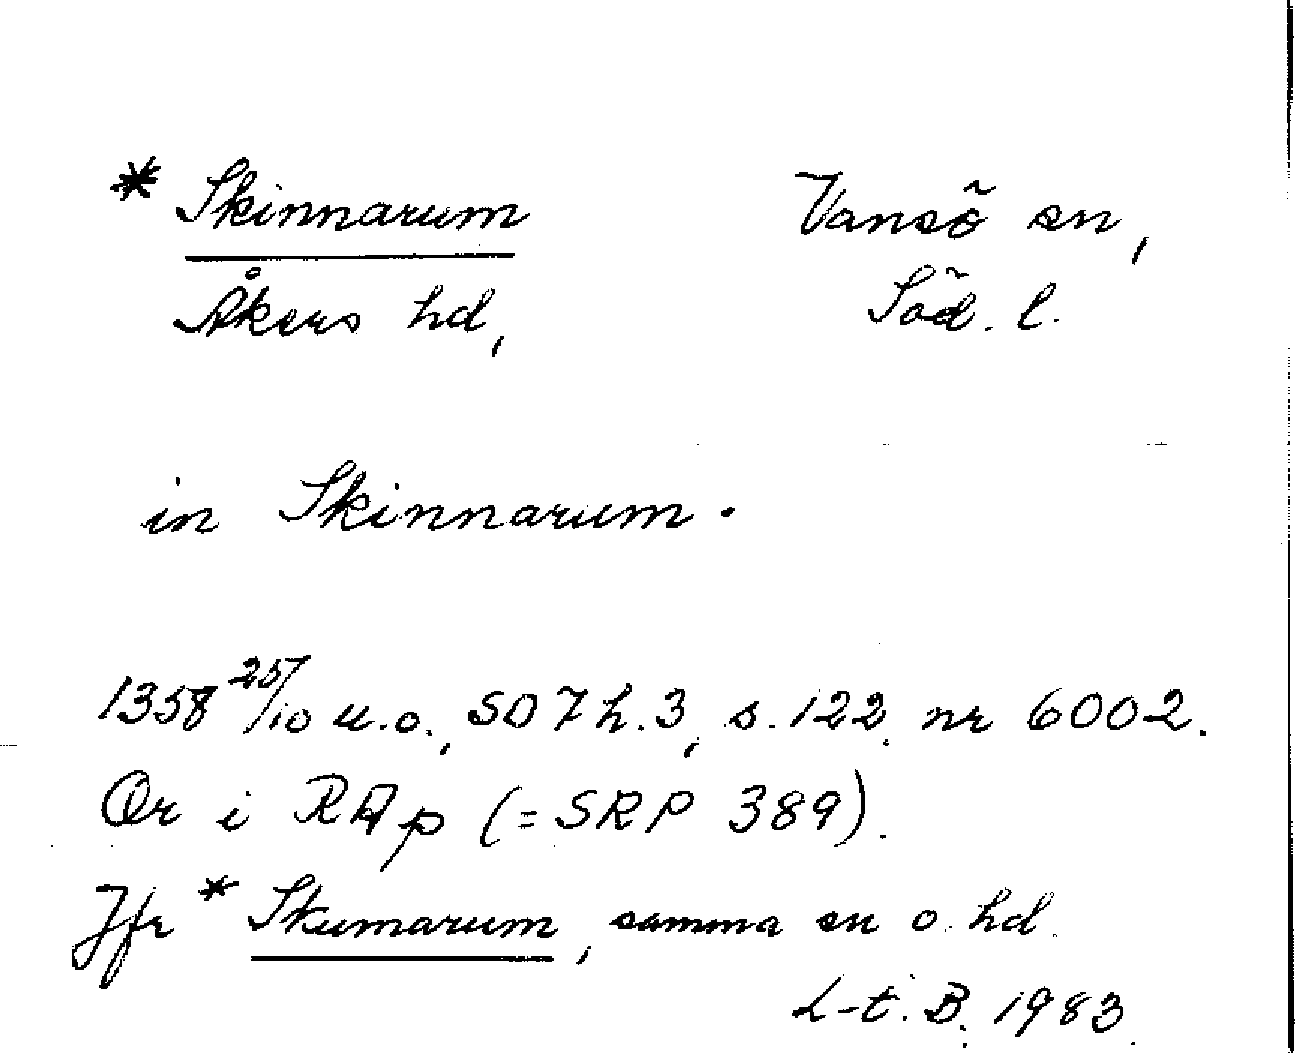 * Skinnarum Vansö sn,
Åkers hd, Söd. l.
in Skinnarum.
1358 25/10 u.o., SD 7 h. 3, s. 122, nr 6002.
Or i RAp (= SRP 389).
Jfr * Skumarum, samma sn o. hd.
L-t. B. 1983